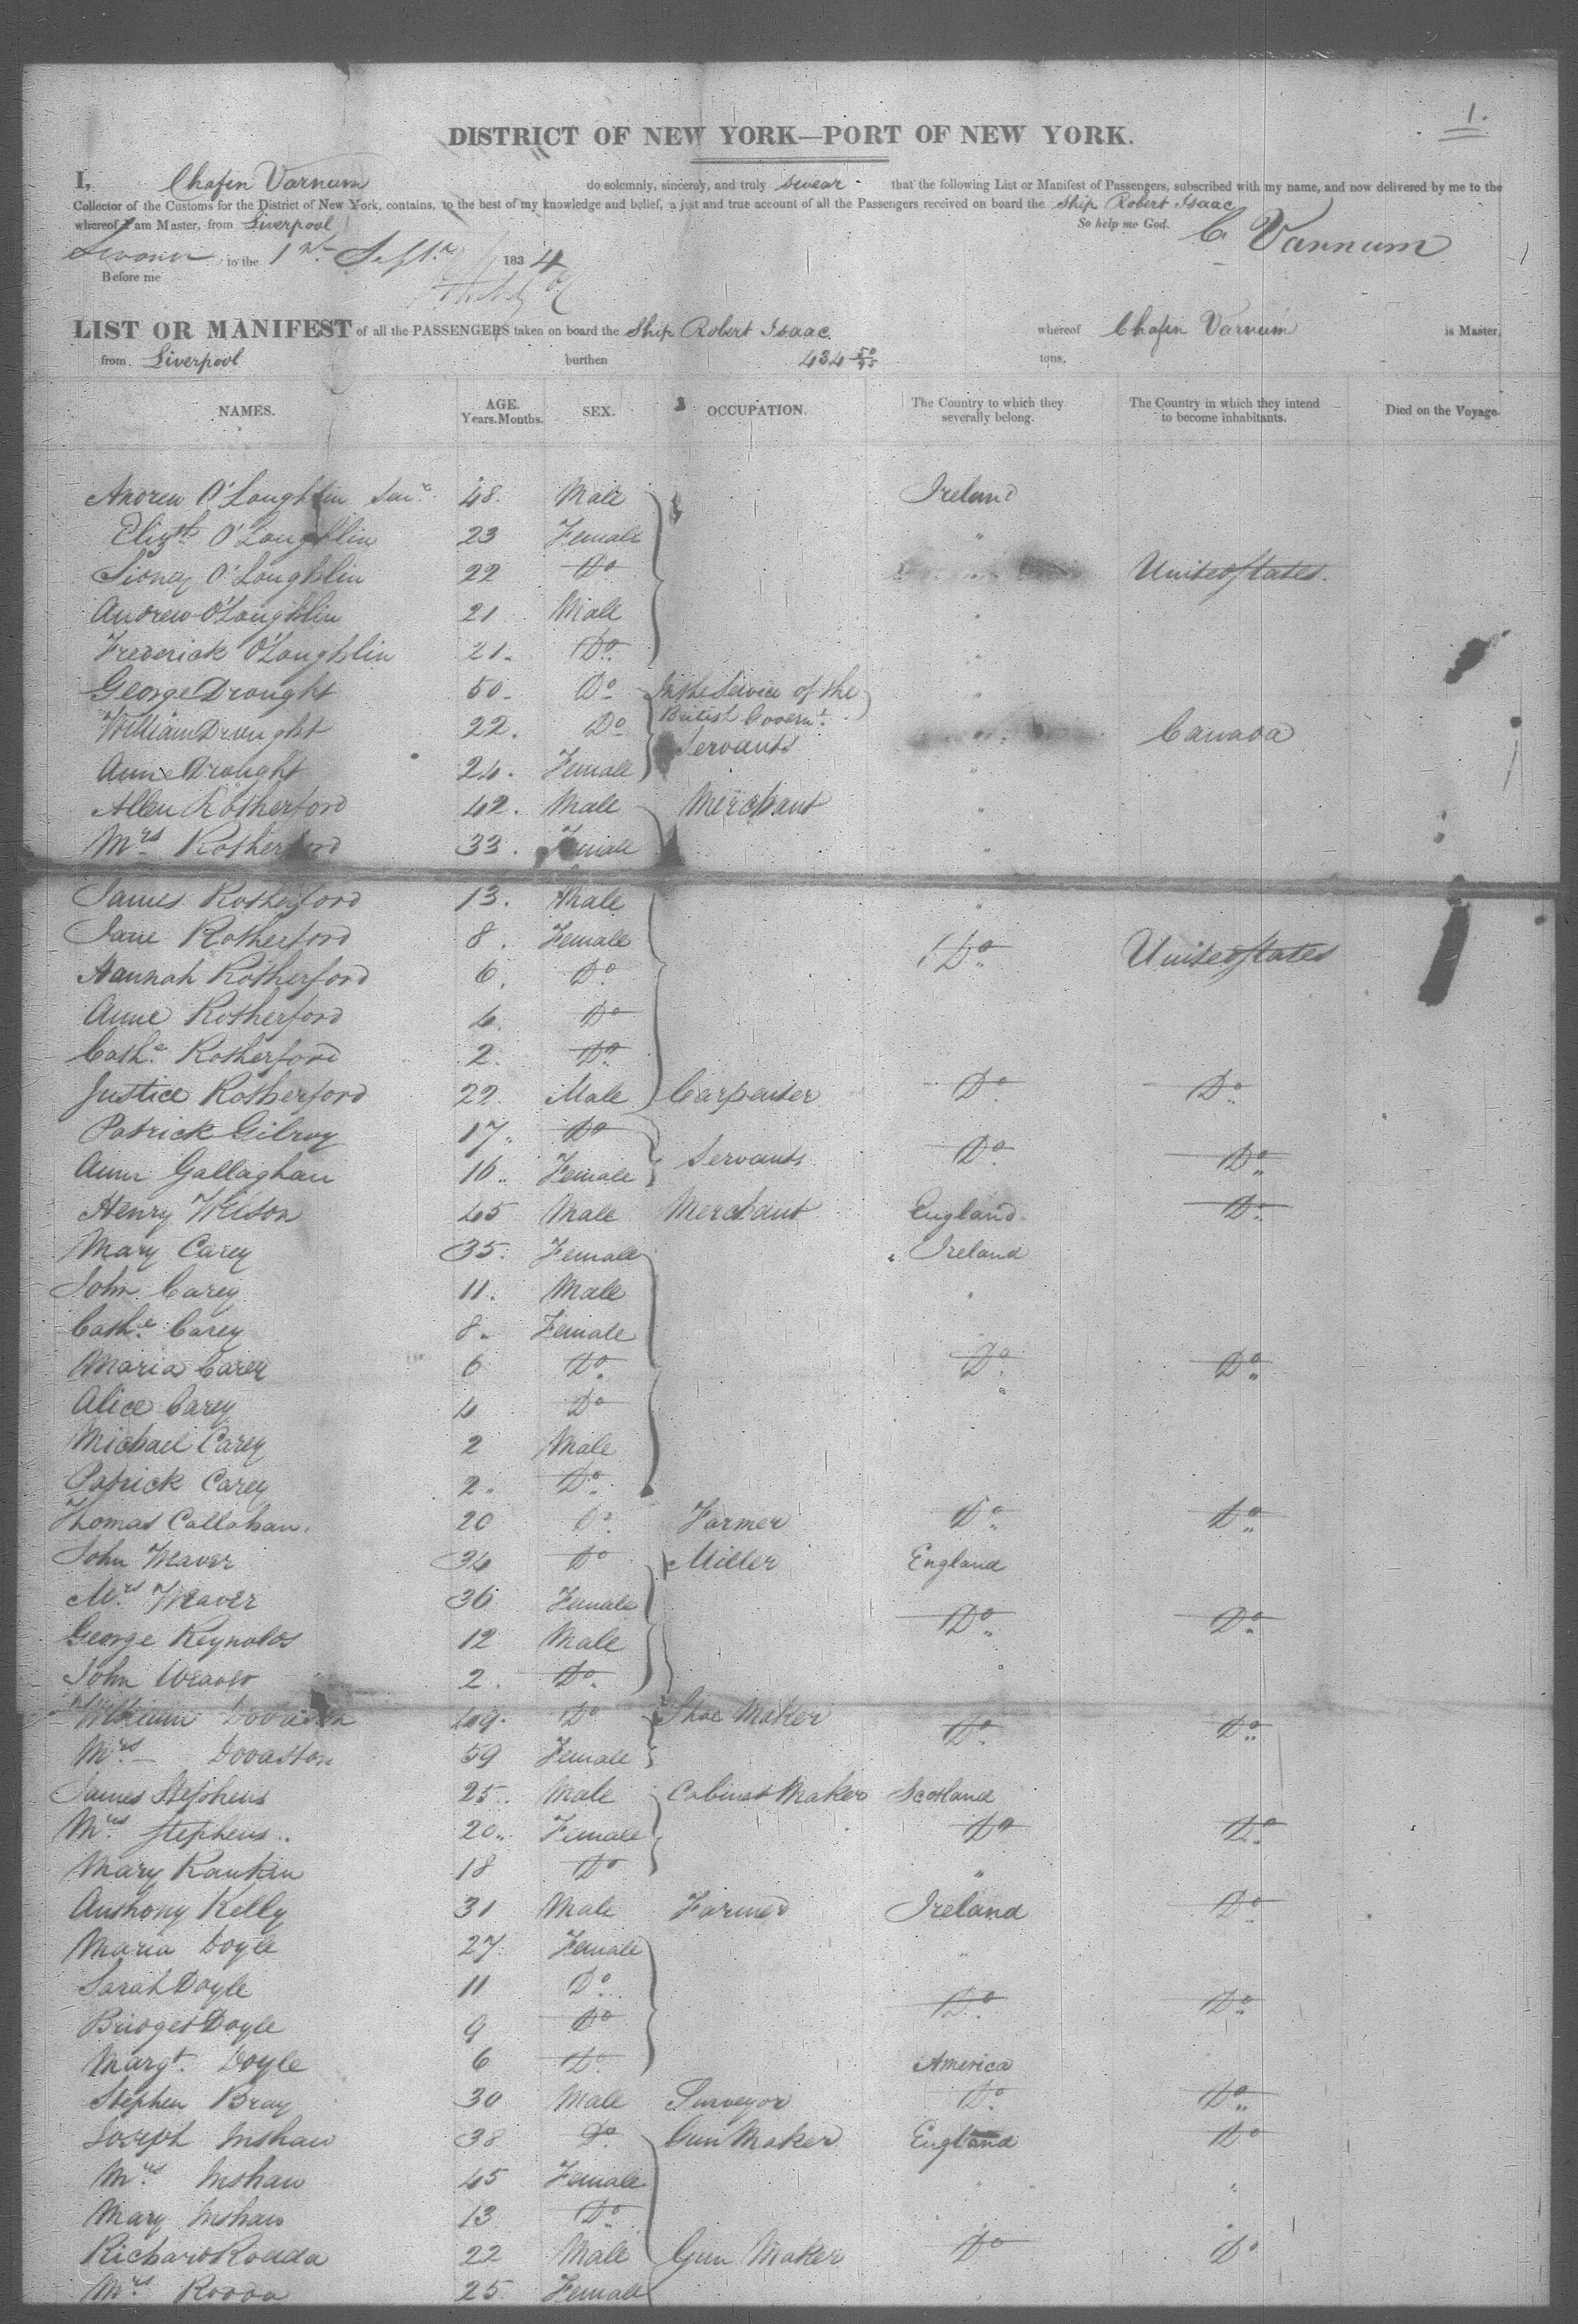 1.
DISTRICT OF NEW YORK—PORT OF NEW YORK.
I, Chafin Varnum do solemnly, sincerely, and truly swear that the following List or Manifest of Passengers, subscribed with my name, and now delivered by me to the
Collector of the Customs for the District of New York, contains, to the best of my knowledge and belief, a just and true account of all the Passengers received on board the Ship Robert Isaac
whereof I am Master, from Liverpool So help me God. C. Varnum
Sworn to the 1st Septr 1834
Before me
LIST OR MANIFEST of all the PASSENGERS taken on board the Ship Robert Isaac whereof Chafin Varnum is Master,
from Liverpool burthen 434 50/95 tons,
NAMES. AGE. Years. Months. SEX. OCCUPATION. The Country to which they severally belong. The Country in which they intend to become inhabitants. Died on the Voyage.
Andrew O'Loughlin Senr 48. Male Ireland
Elizth O'Loughlin 23 Female "
Sidney O'Loughlin 22 Do United States.
Andrew O'Loughlin 21 Male "
Frederick O'Loughlin 21. Do "
George Drought 50. Do In the Service of the British Governt. "
William Drought 22. Do Servants " Canada
Anne Drought 24. Female "
Allen Rotherford 42. Male Merchant "
Mrs Rotherford 33. Female "
James Rotherford 13. Male "
Jane Rotherford 8. Female Do United States
Hannah Rotherford 6. Do
Anne Rotherford 4. Do
Cathe Rotherford 2. Do
Justice Rotherford 22. Male Carpenter Do Do
Patrick Gilroy 17. Do Servants Do Do
Ann Gallaghan 16. Female
Henry Wilson 45 Male Merchant England Do
Mary Carey 35. Female Ireland
John Carey 11. Male "
Cathe Carey 8. Female
Maria Carey 6 Do Do Do
Alice Carey 4 Do
Michael Carey 2 Male
Patrick Carey 2. Do
Thomas Callahan. 20 Do Farmer Do Do
John Weaver 34 Do Miller England
Mrs Weaver 36 Female Do Do
George Reynolds 12 Male
John Weaver 2. Do
William Dovaston 49. Do Shoe Maker Do Do
Mrs Dovaston 59 Female
James Stephens 25. Male Cabinet Maker Scotland
Mrs Stephens 20. Female Do Do
Mary Rankin 18 Do "
Anthony Kelly 31 Male Farmer Ireland Do
Maria Doyle 27. Female "
Sarah Doyle 11 Do Do Do
Bridget Doyle 9 Do
Margt. Doyle 6 Do America
Stephen Bray 30 Male Surveyor Do Do
Joseph Inshaw 38 Do Gun Maker England Do
Mrs Inshaw 45 Female " "
Mary Inshaw 13 Do "
Richard Rodda 22 Male Gun Maker Do Do
Mrs Rodda 25. Female